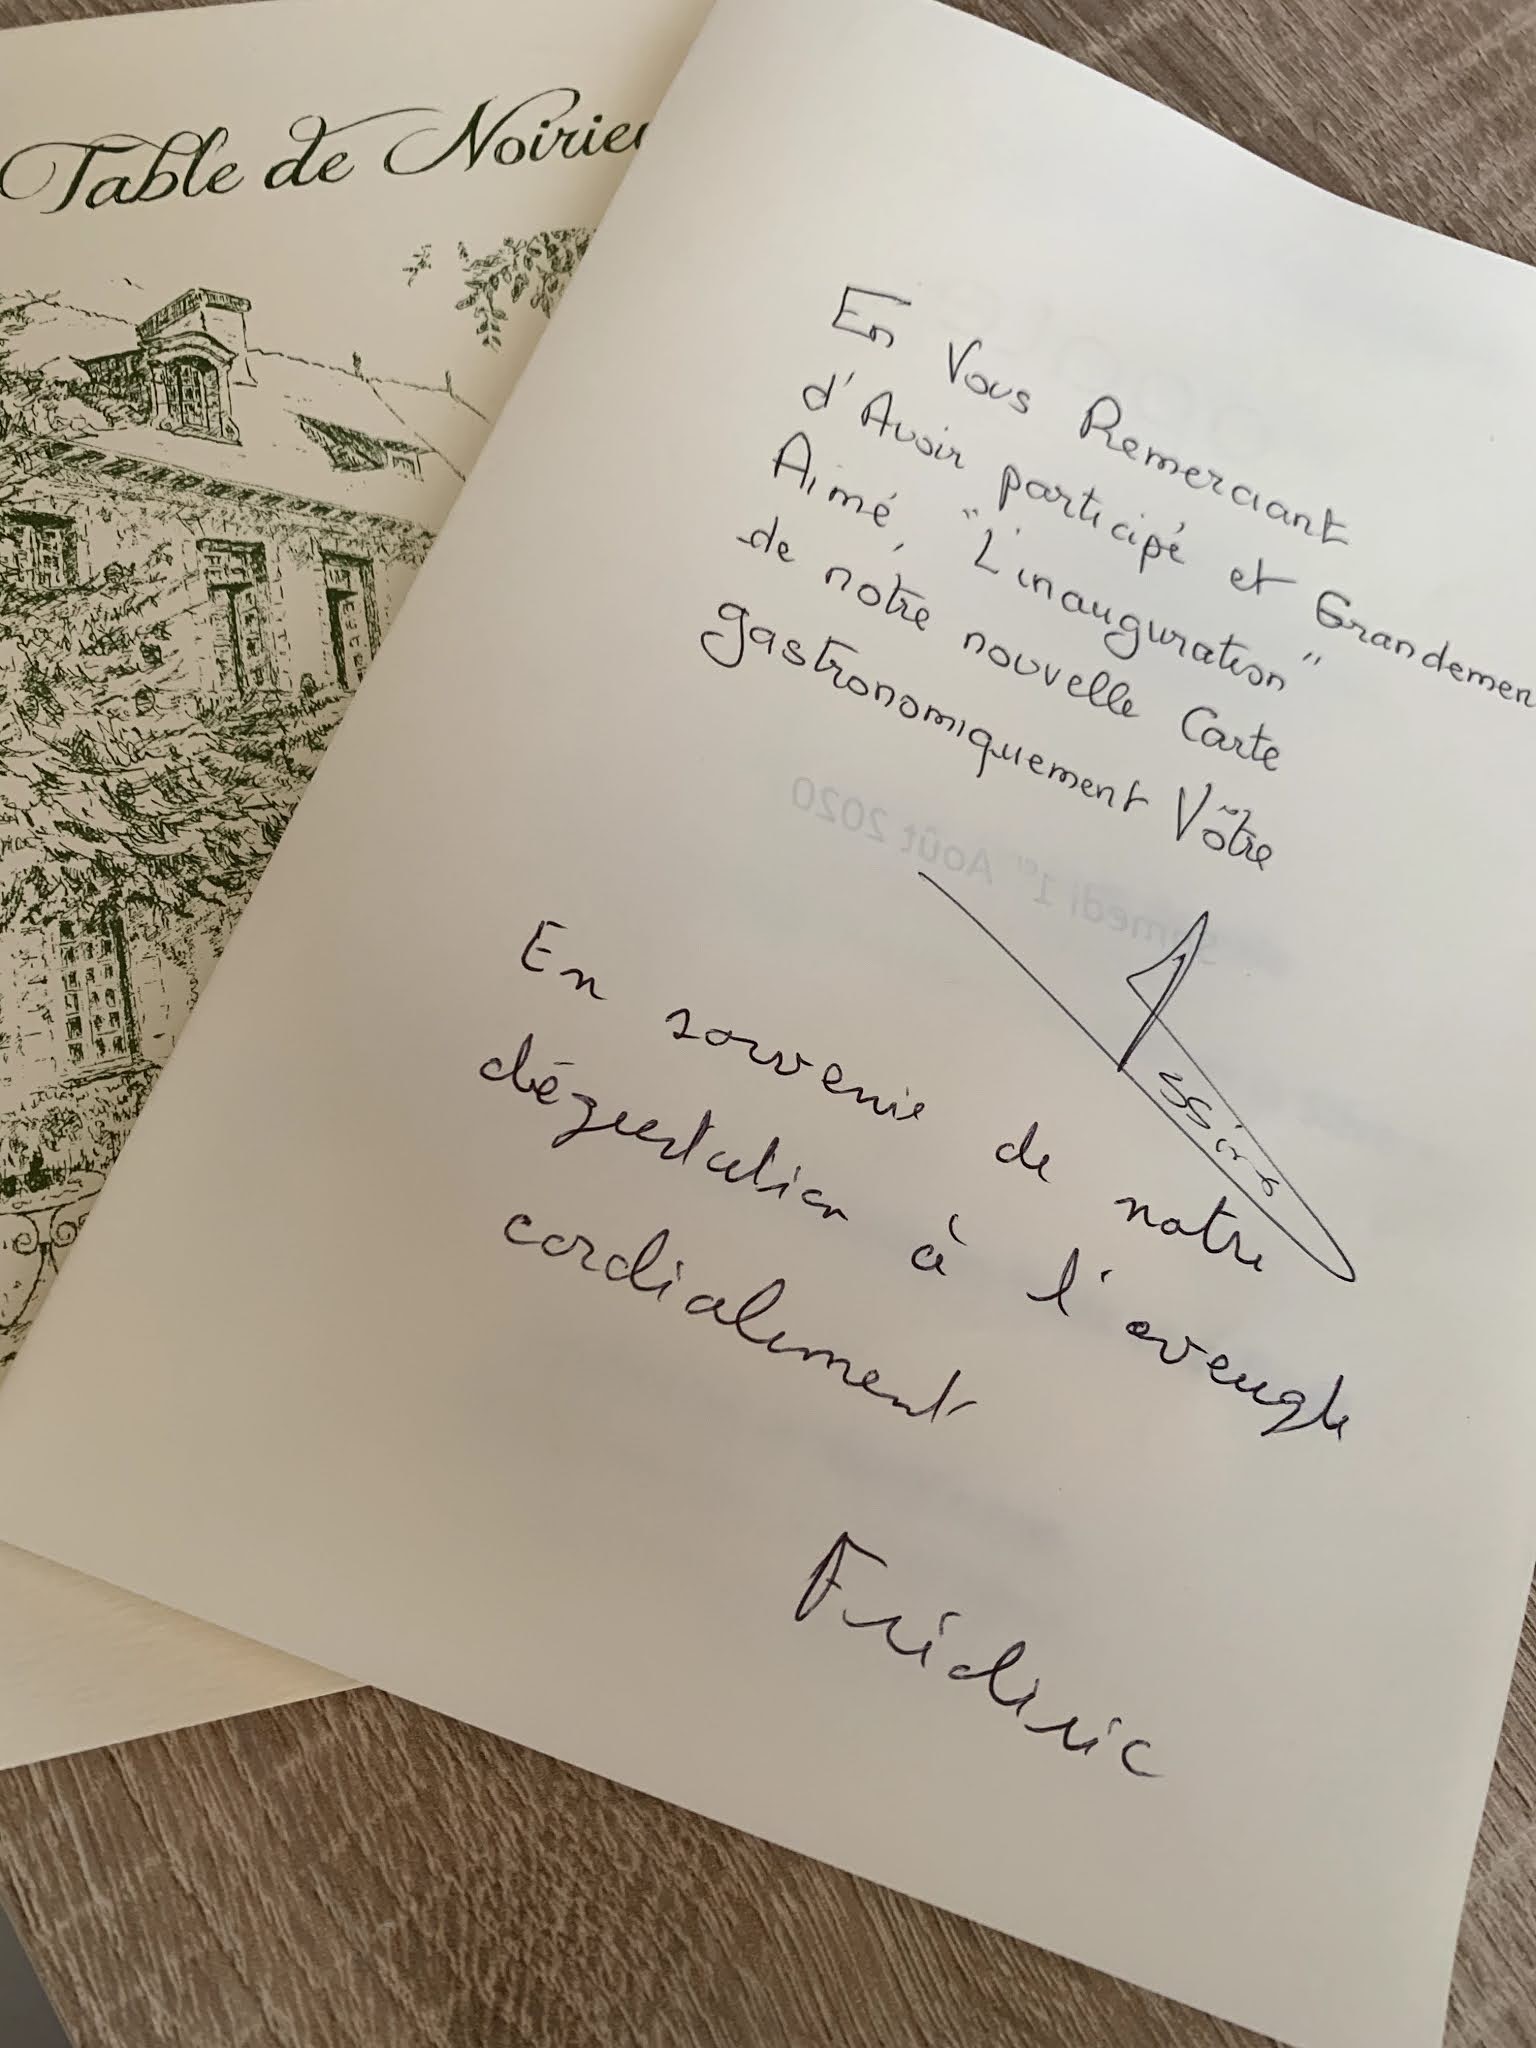 Table de Noirieu
En Vous Remerciant
d'Avoir participé et Grandement
Aimé, "L'inauguration"
de nôtre nouvelle Carte
gastronomiquement Vôtre
Samedi 1er Août 2020
En souvenir de notre
dégustation à l'aveugle
cordialement
Frédéric